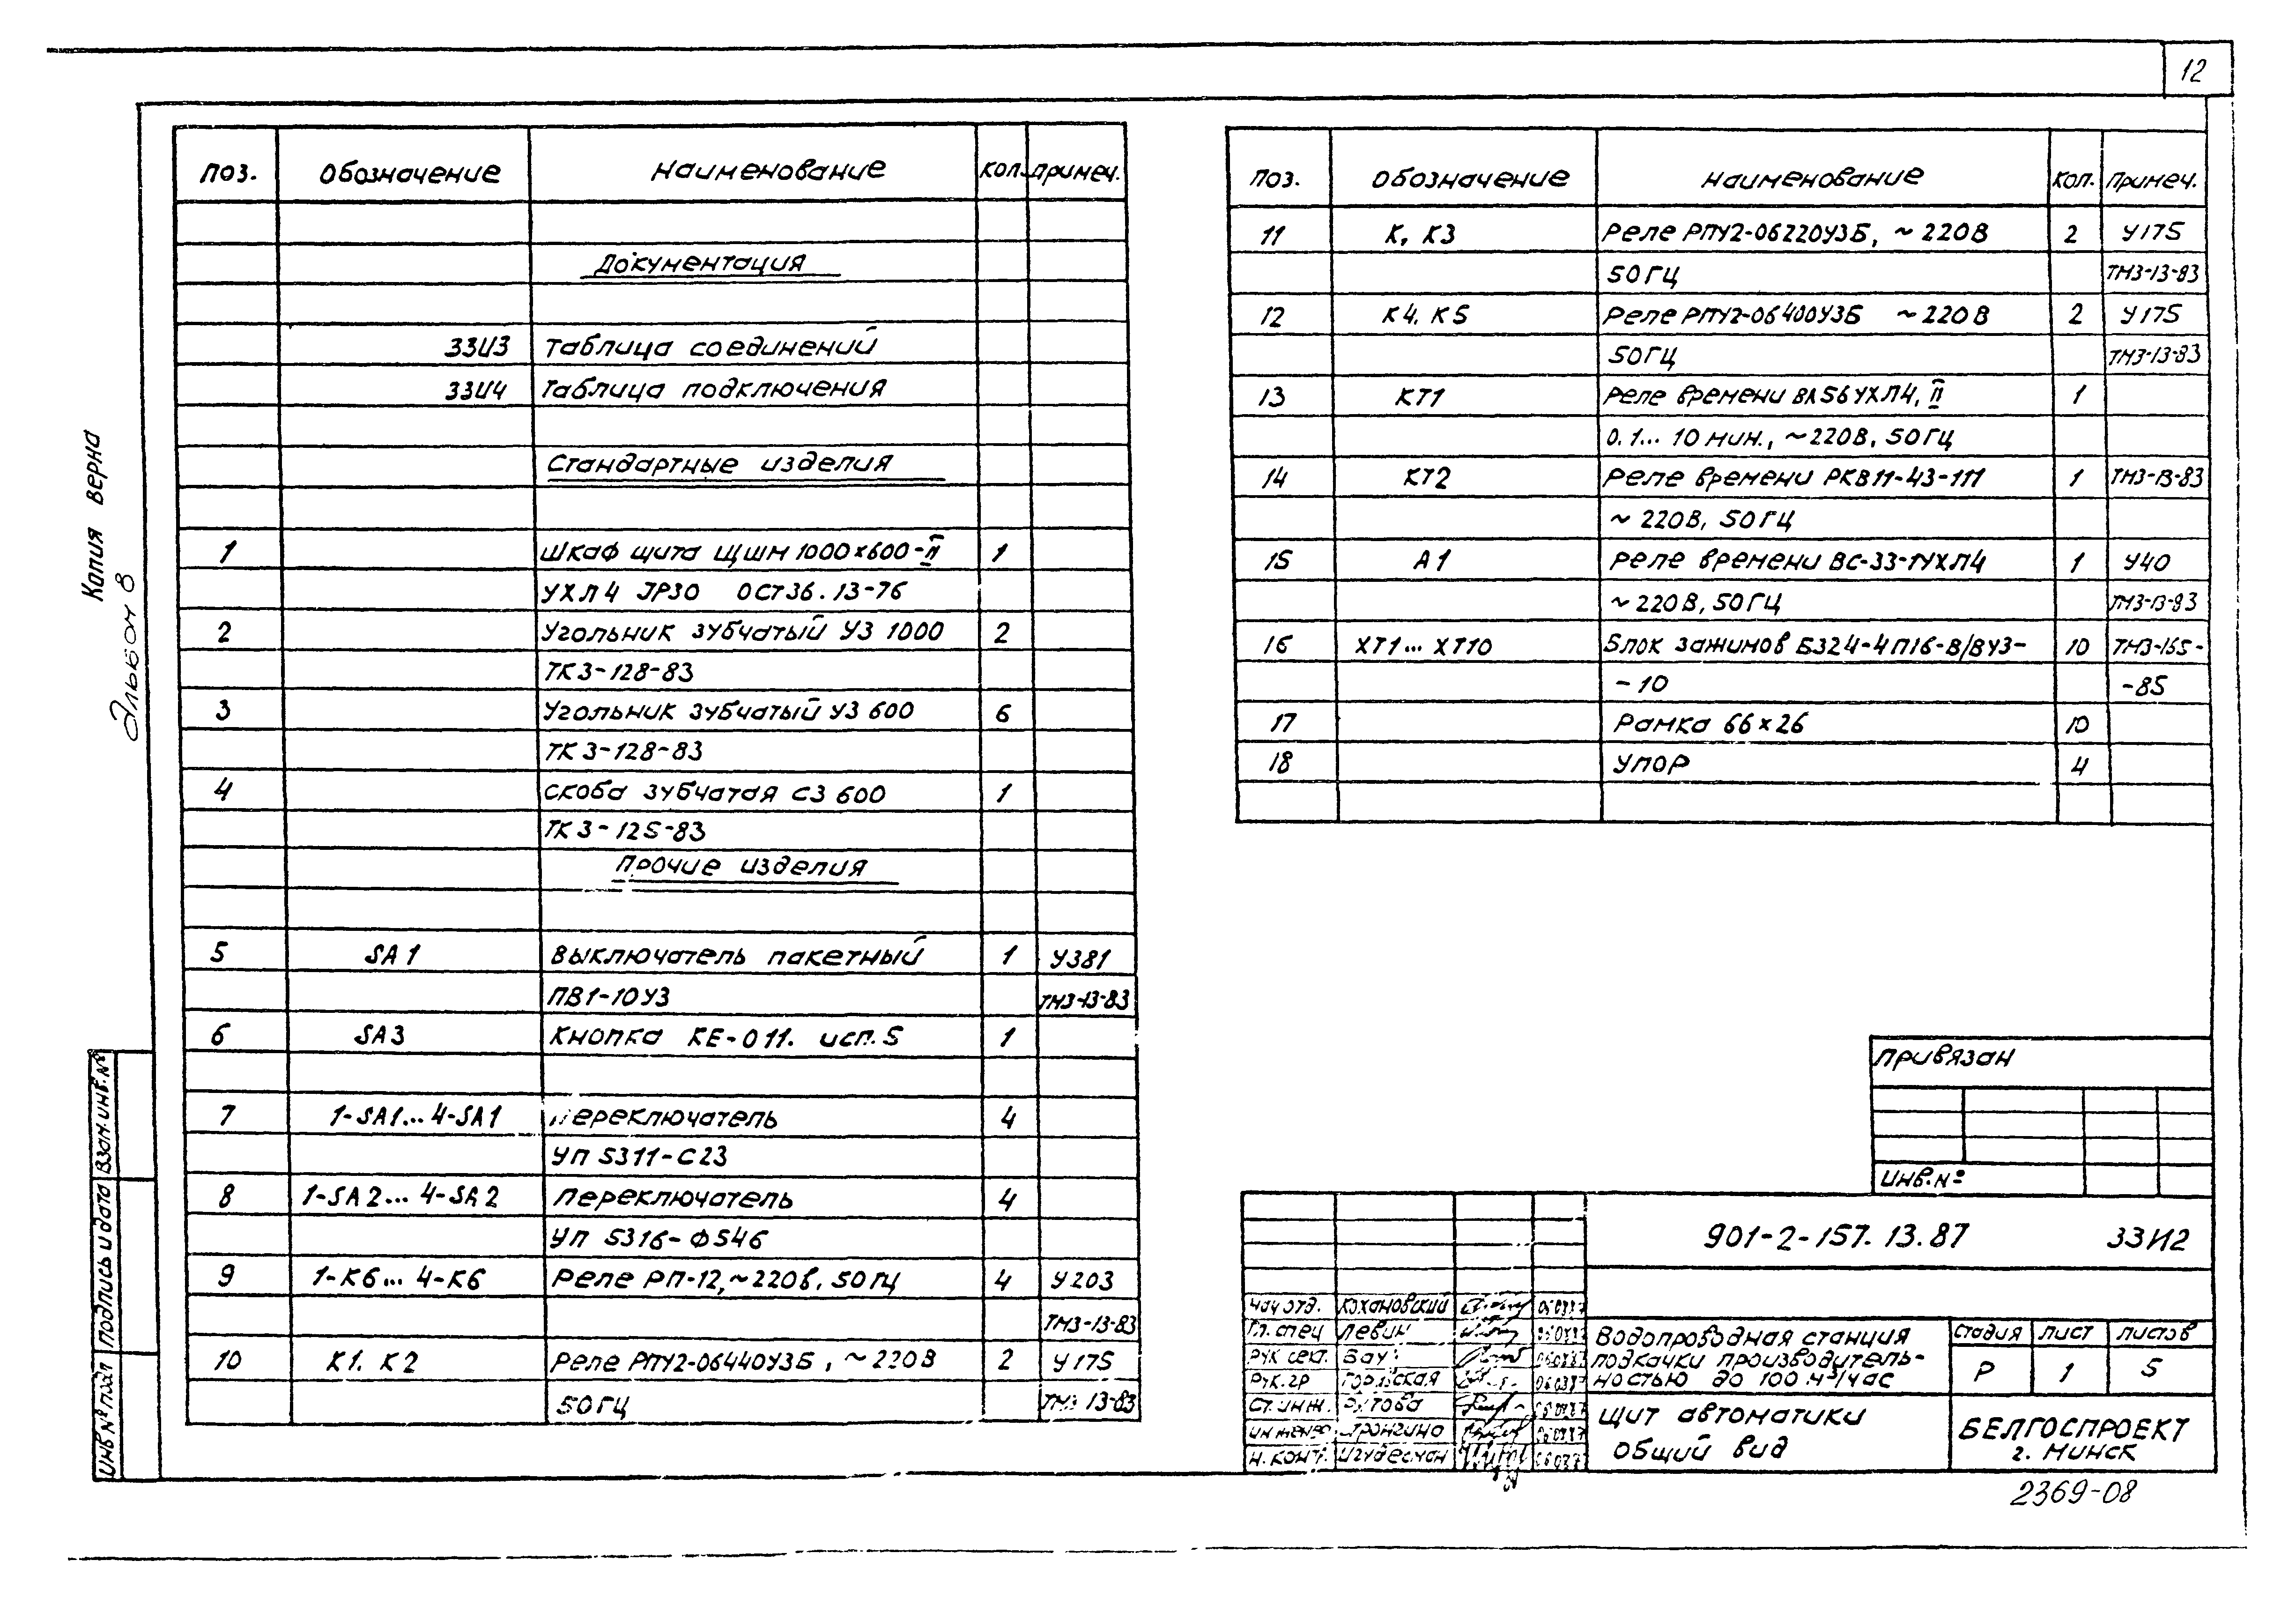 12
Копия верна
Альбом 8
поз. обозначение наименование кол. примеч.
Документация
33И3 таблица соединений
33И4 таблица подключения
Стандартные изделия
1 шкаф щита ЩШМ 1000×600-II 1
УХЛ4 JP30 ОСТ36.13-76
2 угольник зубчатый УЗ 1000 2
ТК3-128-83
3 угольник зубчатый УЗ 600 6
ТК3-128-83
4 скоба зубчатая СЗ 600 1
ТК3-125-83
Прочие изделия
5 SA1 выключатель пакетный 1 У381
ПВ1-10У3 ТМ3-13-83
6 SA3 кнопка КЕ-011. исп.5 1
7 1-SA1... 4-SA1 переключатель 4
УП 5311-С23
8 1-SA2... 4-SA2 переключатель 4
УП 5316-Ф546
9 1-К6... 4-К6 реле РП-12,~220в, 50гц 4 У203
ТМ3-13-83
10 К1. К2 реле РПУ2-06440У3Б, ~220В 2 У175
50ГЦ ТМ3-13-83
поз. обозначение наименование кол. примеч.
11 К, К3 реле РПУ2-06220У3Б, ~220В 2 У175
50ГЦ ТМ3-13-83
12 К4. К5 реле РПУ2-06400У3Б ~220В 2 У175
50ГЦ ТМ3-13-83
13 КТ1 реле времени ВЛ56УХЛ4, II 1
0.1... 10 мин., ~220В, 50ГЦ
14 КТ2 реле времени РКВ11-43-111 1 ТМ3-13-83
~220В, 50ГЦ
15 А1 реле времени ВС-33-1УХЛ4 1 У40
~220В, 50ГЦ ТМ3-13-83
16 ХТ1... ХТ10 блок зажимов БЗ24-4П16-В/ВУ3- 10 ТМ3-165-
-10 -85
17 Рамка 66×26 10
18 УПОР 4
привязан
инв.№
901-2-157.13.87 33И2
нач.отд. Кохановский
гл.спец Левин
рук.сект. Бау
рук.гр
ст.инж.
инженер
н.конт.
водопроводная станция
подкачки производитель-
ностью до 100 м³/час
стадия лист листов
Р 1 5
щит автоматики
общий вид
БЕЛГОСПРОЕКТ
г. Минск
2369-08
взам.инв.№
подпись и дата
инв.№ подл